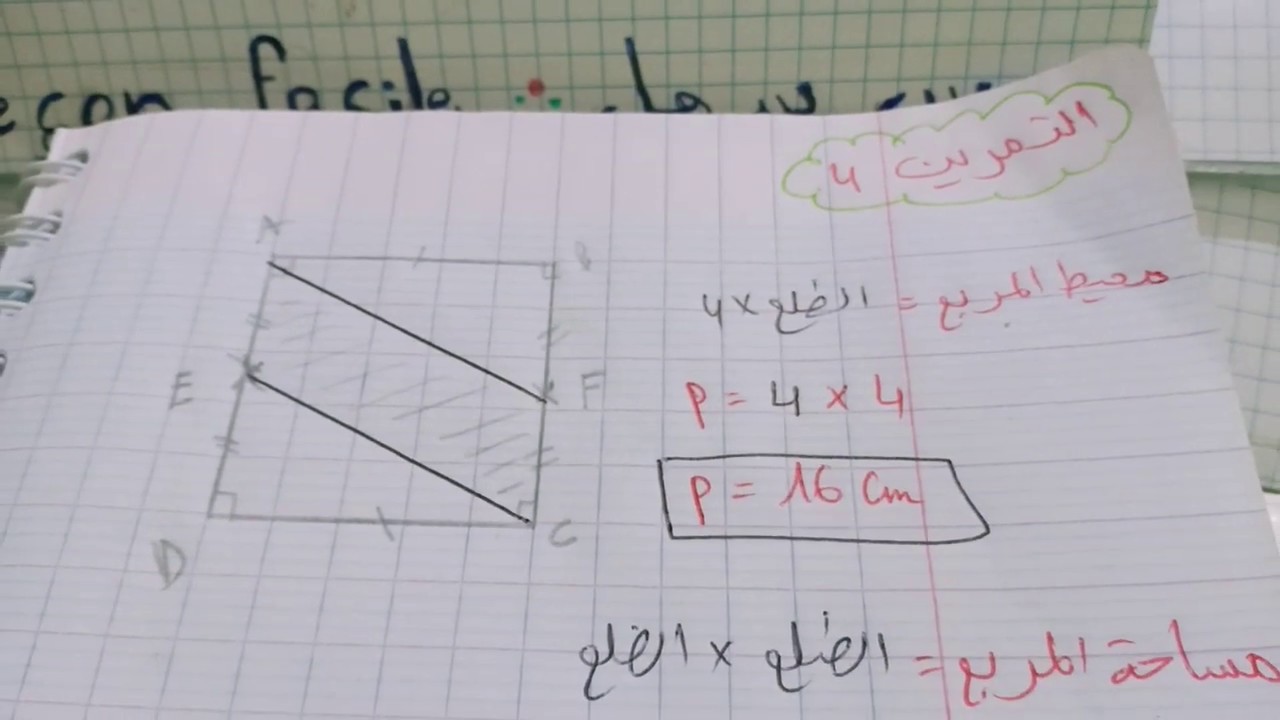 facile
التمرين 4
A
E
F
D
C
محيط المربع = الضلع × 4
P = 4 × 4
P = 16 Cm
مساحة المربع = الضلع × الضلع